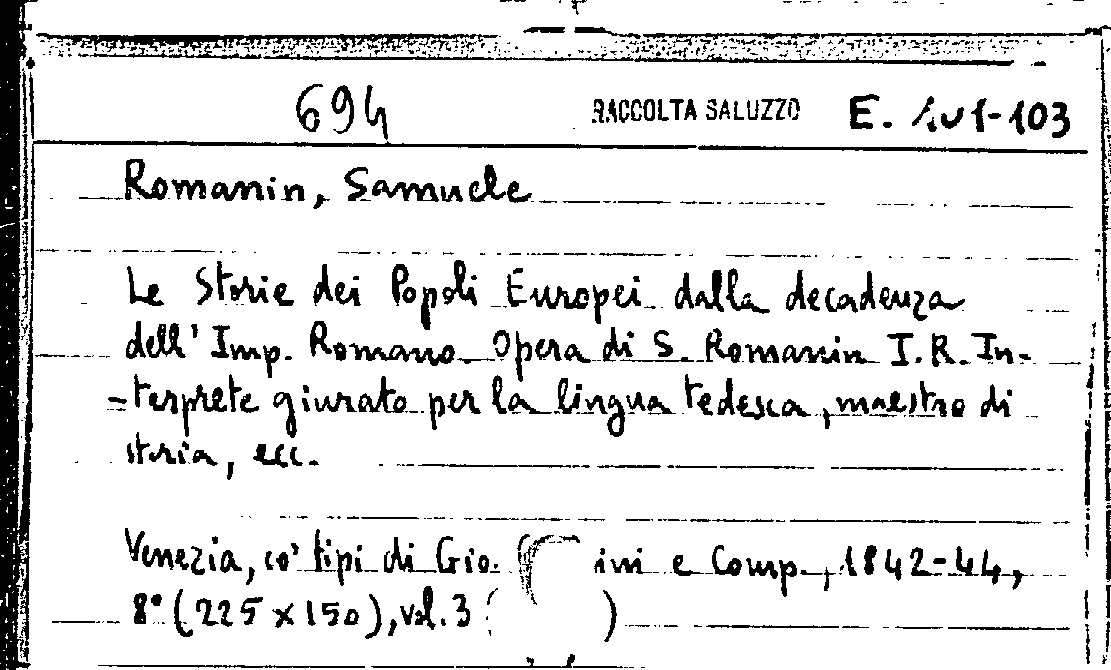 694 RACCOLTA SALUZZO E. 101-103
Romanin, Samuele
Le Storie dei Popoli Europei dalla decadenza
dell' Imp. Romano. Opera di S. Romanin I. R. In-
-terprete giurato per la lingua tedesca, maestro di
storia, ecc.
Venezia, co' tipi di Gio. ini e Comp., 1842-44,
8° (225 x 150), vol. 3 ( )